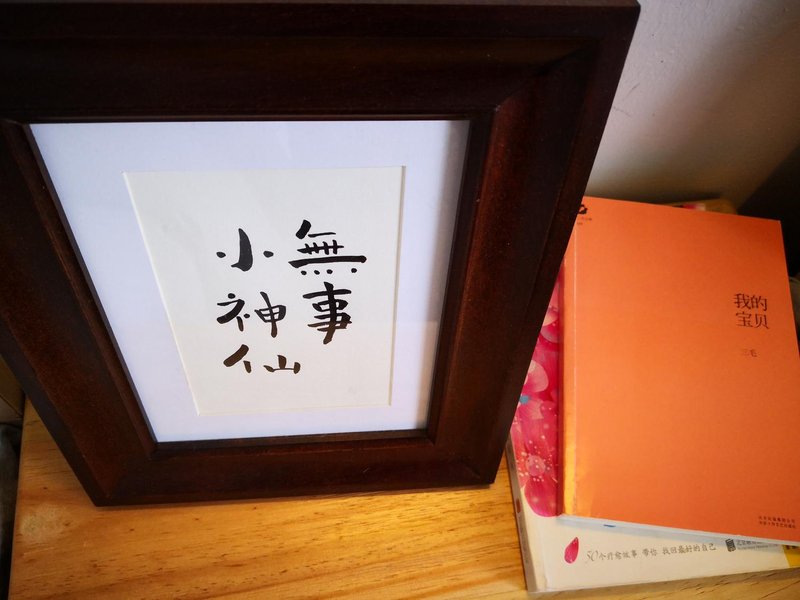 無事
小神仙
我的
宝贝
三毛
50个疗愈故事 带你 找回最好的自己